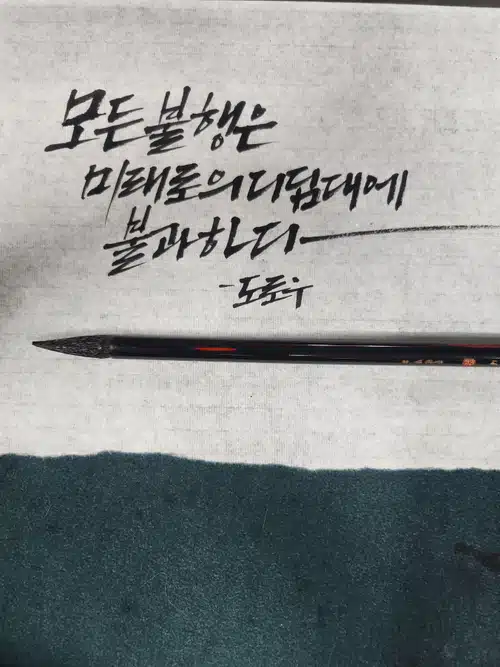 모든 불행은
미래로의 디딤대에
불과하다
-도로우